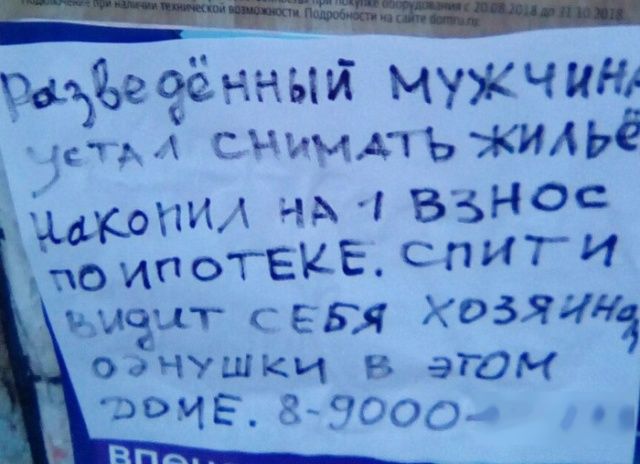 Подключение при наличии технической возможности. Подробности на сайте domru.ru
при покупке оборудования с 20.08.2018 до 31.10.2018
Разведённый мужчина
устал снимать жильё
накопил на 1 взнос
по ипотеке. спит и
видит себя хозяином
однушки в этом
доме. 8-9000-